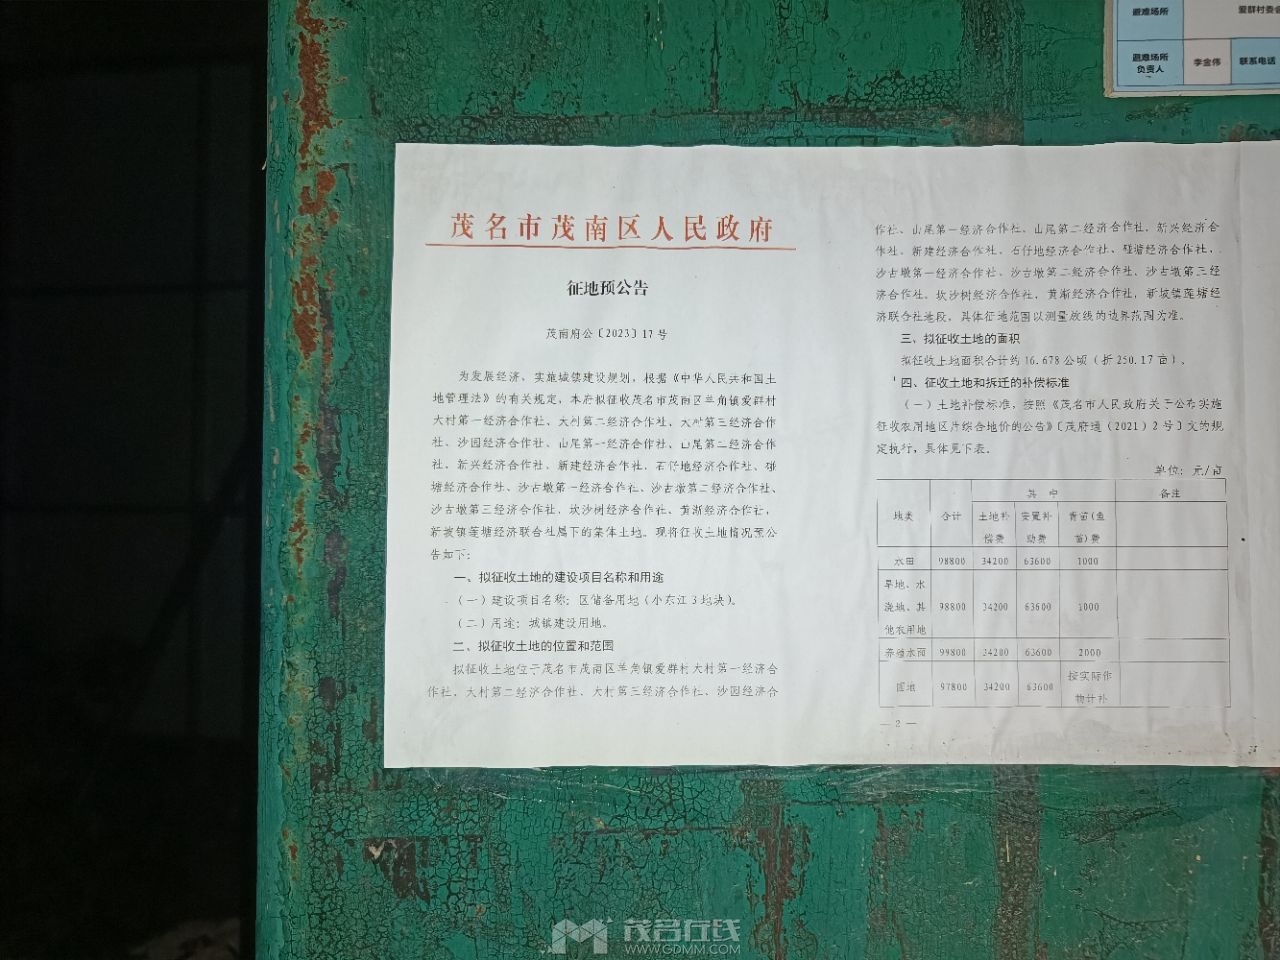 茂名市茂南区人民政府
征地预公告
茂南府公〔2023〕17号
为发展经济、实施城镇建设规划，根据《中华人民共和国土
地管理法》的有关规定，本府拟征收茂名市茂南区羊角镇爱群村
大村第一经济合作社、大村第二经济合作社、大村第三经济合作
社、沙园经济合作社、山尾第一经济合作社、山尾第二经济合作
社、新兴经济合作社、新建经济合作社、石仔地经济合作社、碰
塘经济合作社、沙古墩第一经济合作社、沙古墩第二经济合作社、
沙古墩第三经济合作社、坎沙树经济合作社、黄渐经济合作社，
新坡镇莲塘经济联合社属下的集体土地。现将征收土地情况预公
告如下：
一、拟征收土地的建设项目名称和用途
（一）建设项目名称：区储备用地（小东江3地块）。
（二）用途：城镇建设用地。
二、拟征收土地的位置和范围
拟征收土地位于茂名市茂南区羊角镇爱群村大村第一经济合
作社、大村第二经济合作社、大村第三经济合作社、沙园经济合
作社、山尾第一经济合作社、山尾第二经济合作社、新兴经济合
作社、新建经济合作社、石仔地经济合作社、碰塘经济合作社、
沙古墩第一经济合作社、沙古墩第二经济合作社、沙古墩第三经
济合作社、坎沙树经济合作社、黄渐经济合作社，新坡镇莲塘经
济联合社地段，具体征地范围以测量放线的边界范围为准。
三、拟征收土地的面积
拟征收土地面积合计约16.678公顷（折250.17亩）。
四、征收土地和拆迁的补偿标准
（一）土地补偿标准，按照《茂名市人民政府关于公布实施
征收农用地区片综合地价的公告》〔茂府通（2021）2号〕文的规
定执行，具体见下表。
单位：元/亩
地类 合计 其中 备注
土地补偿费 安置补助费 青苗(鱼苗)费
水田 98800 34200 63600 1000
旱地、水浇地、其他农用地 98800 34200 63600 1000
养殖水面 99800 34200 63600 2000
园地 97800 34200 63600 按实际作物计补
— 2 —
避难场所 爱群村委会
避难场所
负责人 李金伟 联系电话
茂名在线
WWW.GDMM.COM